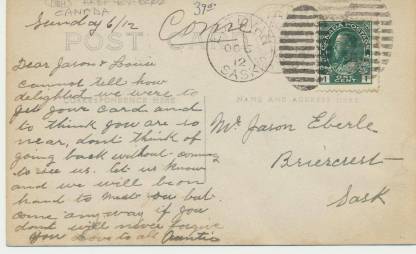 CANADA
Sunday 6/12
39.
Come
POST
DEC
12
SASK
CANADA POSTAGE
ONE CENT
Dear Jason & Louie
cannot tell how
delighted we were to
get your card and
CORRESPONDENCE HERE
NAME AND ADDRESS HERE
to think you are so
near, dont think of
going back without coming
to see us. let us know
and we will be on
hand to meet you but
come any way if you
dont will never forgive
you Love to all Auntie
Mr Jason Eberle
Briercrest
Sask